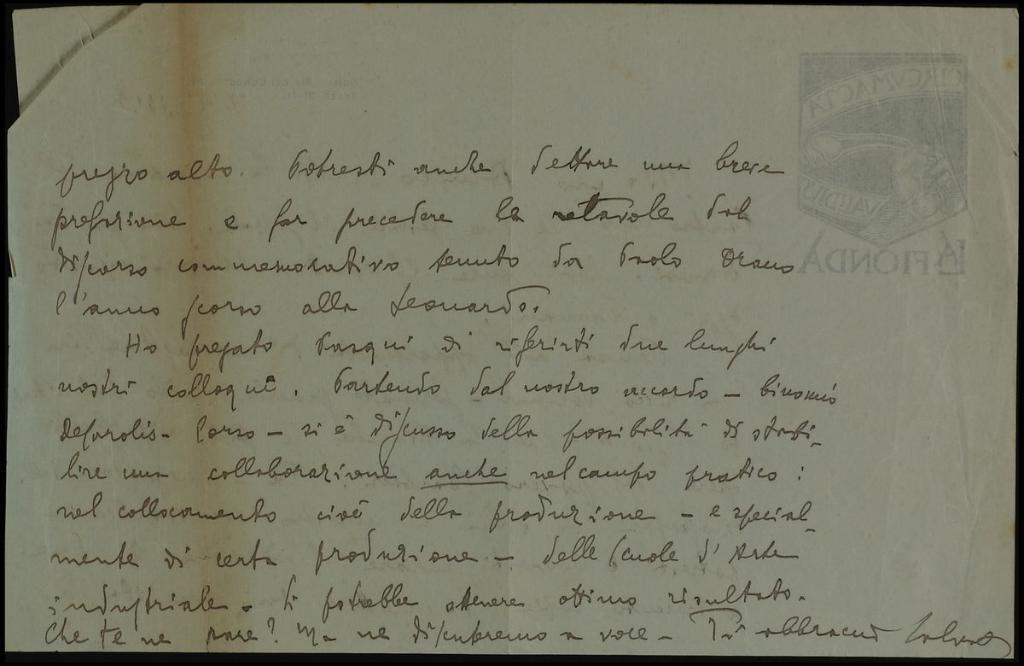 prezzo alto. Potresti anche dettare una breve
prefazione e far precedere le tavole dal
discorso commemorativo tenuto da Paolo Orano
l'anno scorso alla Leonardo.
Ho pregato Pasqui di riferirti due lunghi
nostri colloqui. Partendo dal nostro accordo – binomio
Decarolis – Corso – si è discusso della possibilità di stabi-
lire una collaborazione anche nel campo pratico:
nel collocamento cioè della produzione – e special-
mente di certa produzione – delle Scuole d'Arte
industriale. Si potrebbe ottenere ottimo risultato.
Che te ne pare? Ma ne discuteremo a voce – Ti abbraccio
CIRCVMACTA
VALIDIVS
LA FIONDA